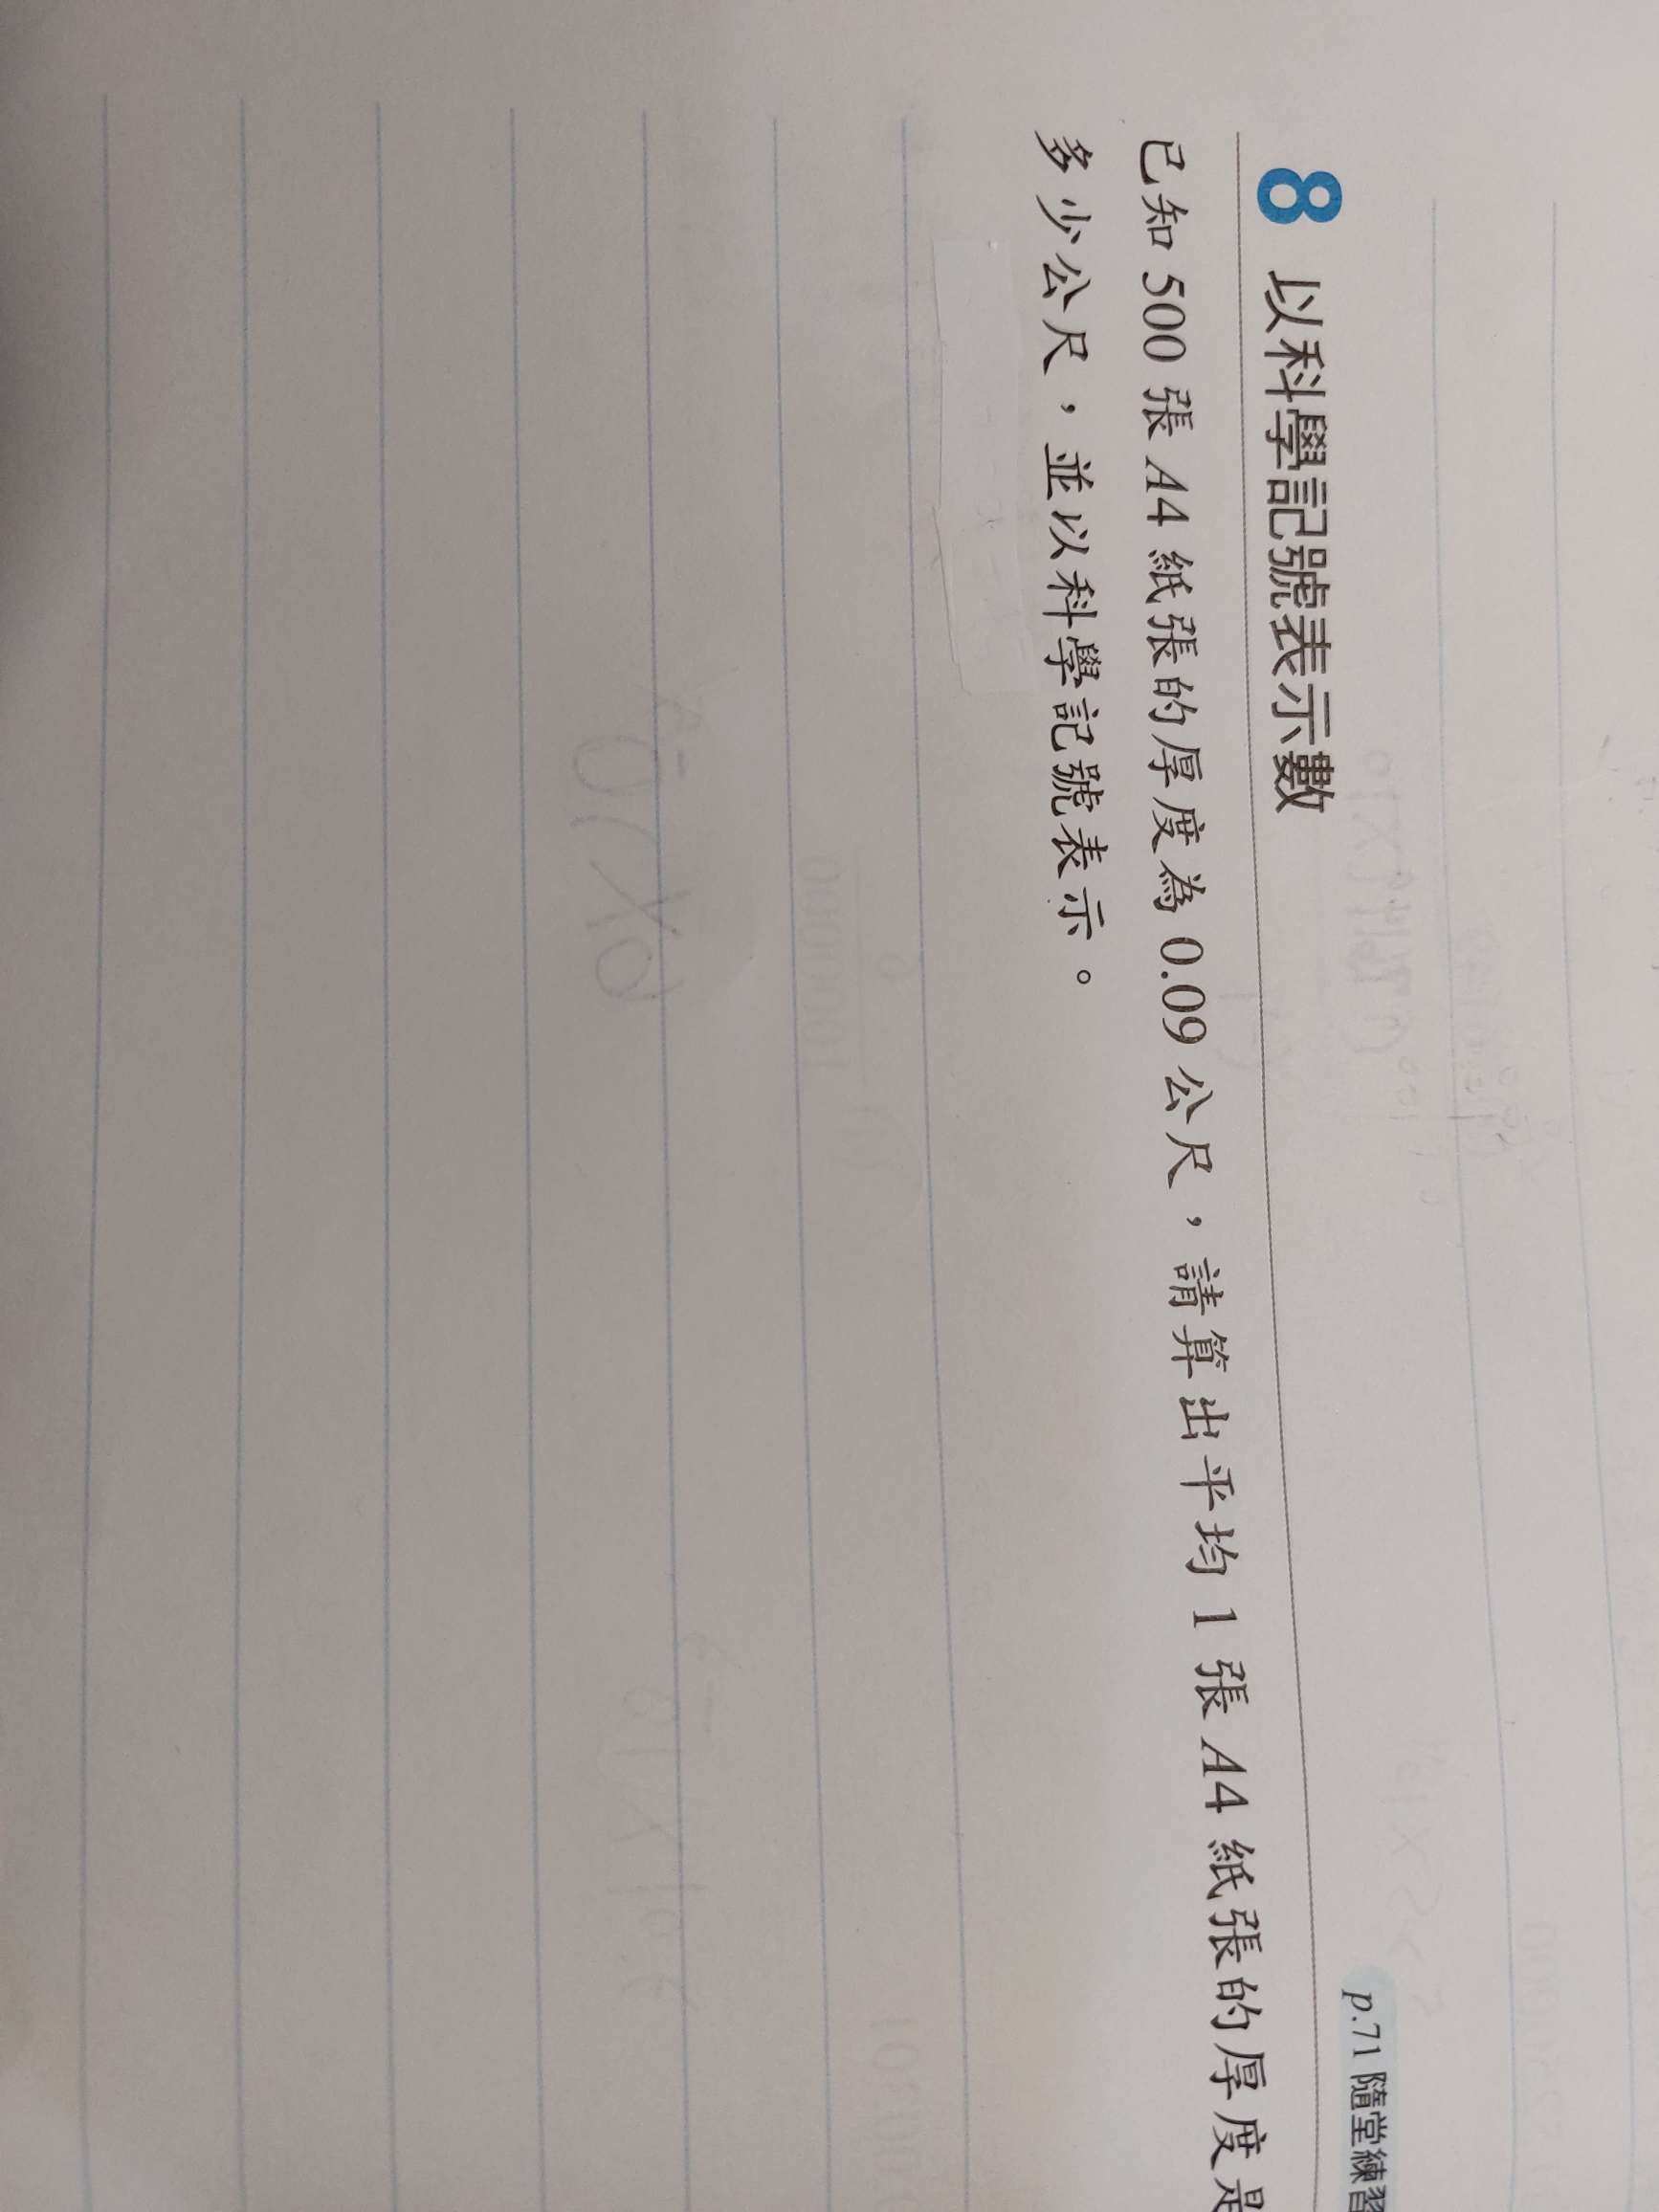 8 以科學記號表示數
p.71 隨堂練習
已知 500 張 A4 紙張的厚度為 0.09 公尺，請算出平均 1 張 A4 紙張的厚度是
多少公尺，並以科學記號表示。